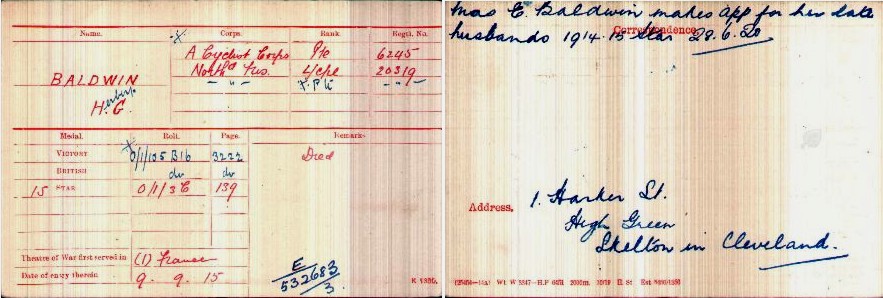 Name. Corps. Rank Regtl. No.
× A Cyclist Corps Pte 6245
BALDWIN North'd Fus. L/Cpl 20319
— " — — " —
Herbert G.
Medal. Roll. Page. Remarks
VICTORY × O/1/105 B16 3222 Died
BRITISH do do
15 STAR O/1/3 C 139
Theatre of War first served in (1) France
Date of entry therein 9. 9. 15
E
532683
3.
K 1380.
Mrs E. Baldwin makes app for her late
Correspondence.
husbands 1914.15 Star 28.6.20
Address, 1. Harker St.
High Green
Skelton in Cleveland.